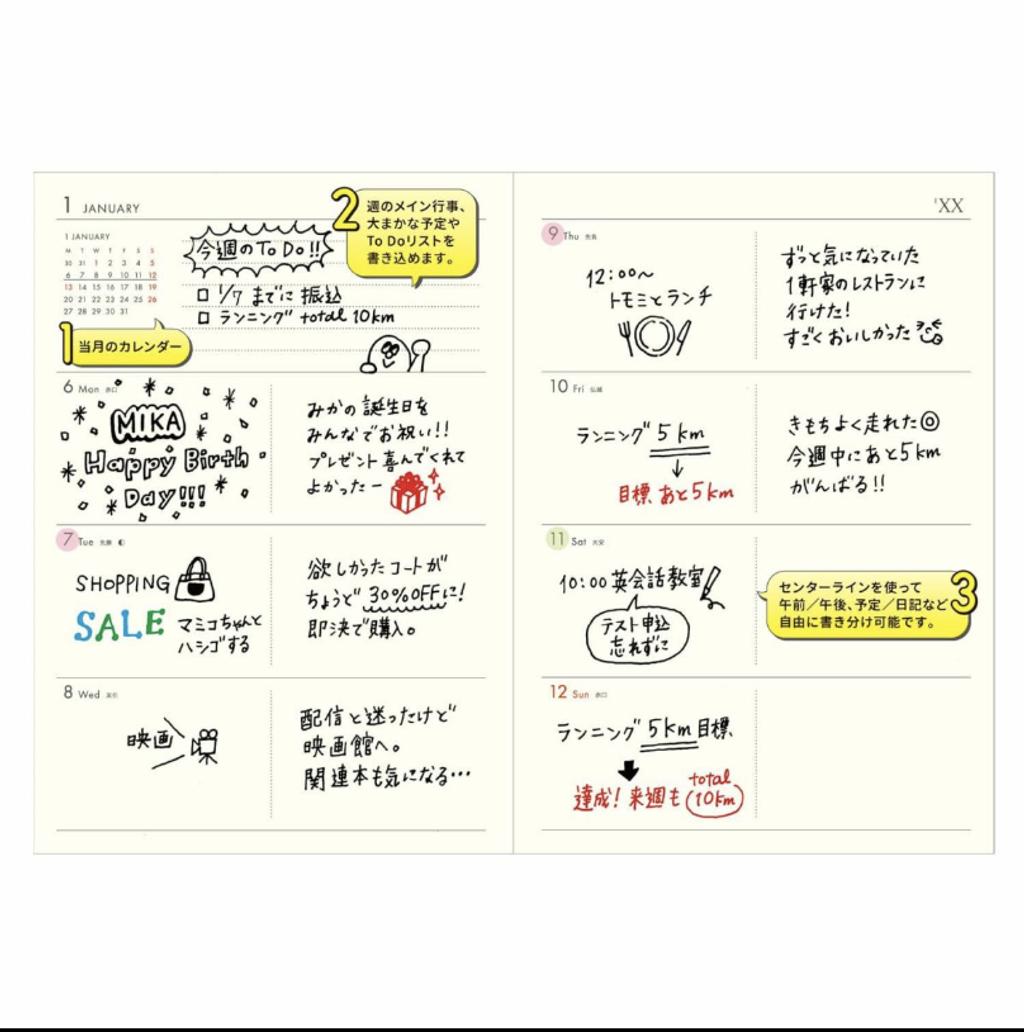 1 JANUARY
1 JANUARY
M T W T F S S
30 31 1 2 3 4 5
6 7 8 9 10 11 12
13 14 15 16 17 18 19
20 21 22 23 24 25 26
27 28 29 30 31
1 当月のカレンダー
今週のTo Do!!
□ 1/7 までに振込
□ ランニング total 10km
2 週のメイン行事、
大まかな予定や
To Doリストを
書き込めます。
6 Mon 赤口
MIKA
Happy Birth
Day!!!
みかの誕生日を
みんなでお祝い!!
プレゼント喜んでくれて
よかったー
7 Tue 先勝
SHOPPING
SALE
マミコちゃんと
ハシゴする
欲しかったコートが
ちょうど30%OFFに!
即決で購入。
8 Wed 友引
映画
配信と迷ったけど
映画館へ。
関連本も気になる…
'XX
9 Thu 先負
12:00〜
トモミとランチ
ずっと気になっていた
1軒家のレストランに
行けた!
すごくおいしかった
10 Fri 仏滅
ランニング 5km
↓
目標 あと5km
きもちよく走れた◎
今週中にあと5km
がんばる!!
11 Sat 大安
10:00 英会話教室
テスト申込
忘れずに
3 センターラインを使って
午前/午後、予定/日記など
自由に書き分け可能です。
12 Sun 赤口
ランニング 5km目標
達成! 来週も total
10km